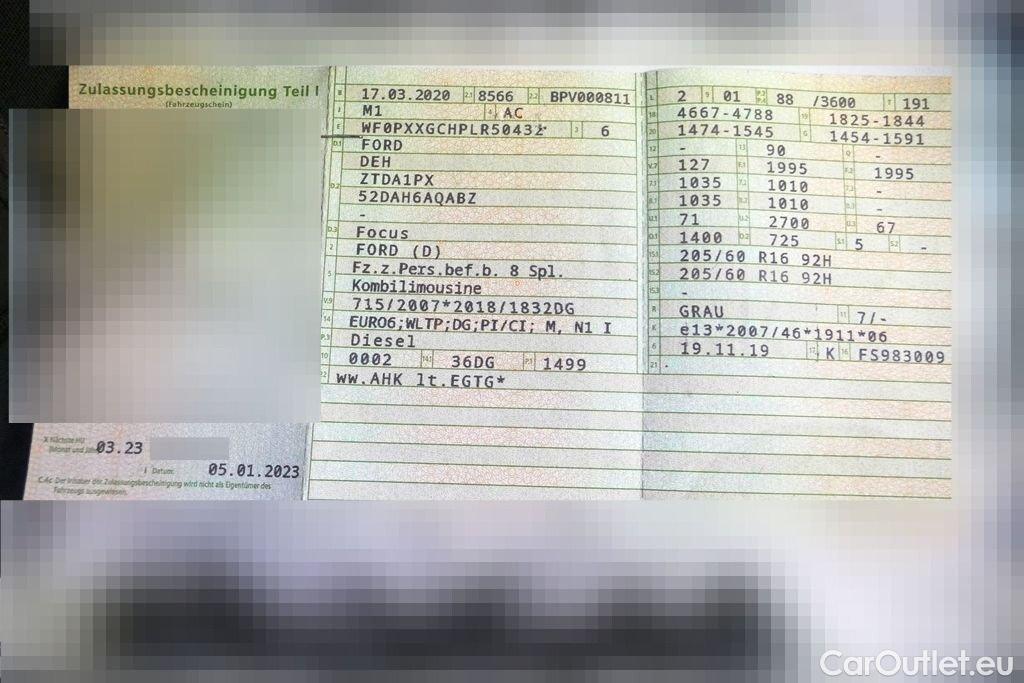 Zulassungsbescheinigung Teil I
(Fahrzeugschein)
X Nächste HU
(Monat und Jahr) 03.23
I Datum: 05.01.2023
C.4c Der Inhaber der Zulassungsbescheinigung wird nicht als Eigentümer des
Fahrzeugs ausgewiesen.
B 17.03.2020 2.1 8566 2.2 BPV000811
J M1 4 AC
E WF0PXXGCHPLR5043 3 6
D.1 FORD
DEH
ZTDA1PX
D.2 52DAH6AQABZ
-
D.3 Focus
2 FORD (D)
5 Fz.z.Pers.bef.b. 8 Spl.
Kombilimousine
V.9 715/2007*2018/1832DG
14 EURO6;WLTP;DG;PI/CI; M, N1 I
P.3 Diesel
10 0002 14.1 36DG P.1 1499
22 ww.AHK lt.EGTG*
L 2 9 01 P.2 P.4 88 /3600 T 191
18 4667-4788 19 1825-1844
20 1474-1545 G 1454-1591
12 - 13 90 Q -
V.7 127 F.1 1995 F.2 1995
7.1 1035 7.2 1010 7.3 -
8.1 1035 8.2 1010 8.3 -
U.1 71 U.2 2700 U.3 67
O.1 1400 O.2 725 S.1 5 S.2 -
15.1 205/60 R16 92H
15.2 205/60 R16 92H
15.3 -
R GRAU 11 7/-
K e13*2007/46*1911*06
6 19.11.19 17 K 16 FS983009
21 .
CarOutlet.eu